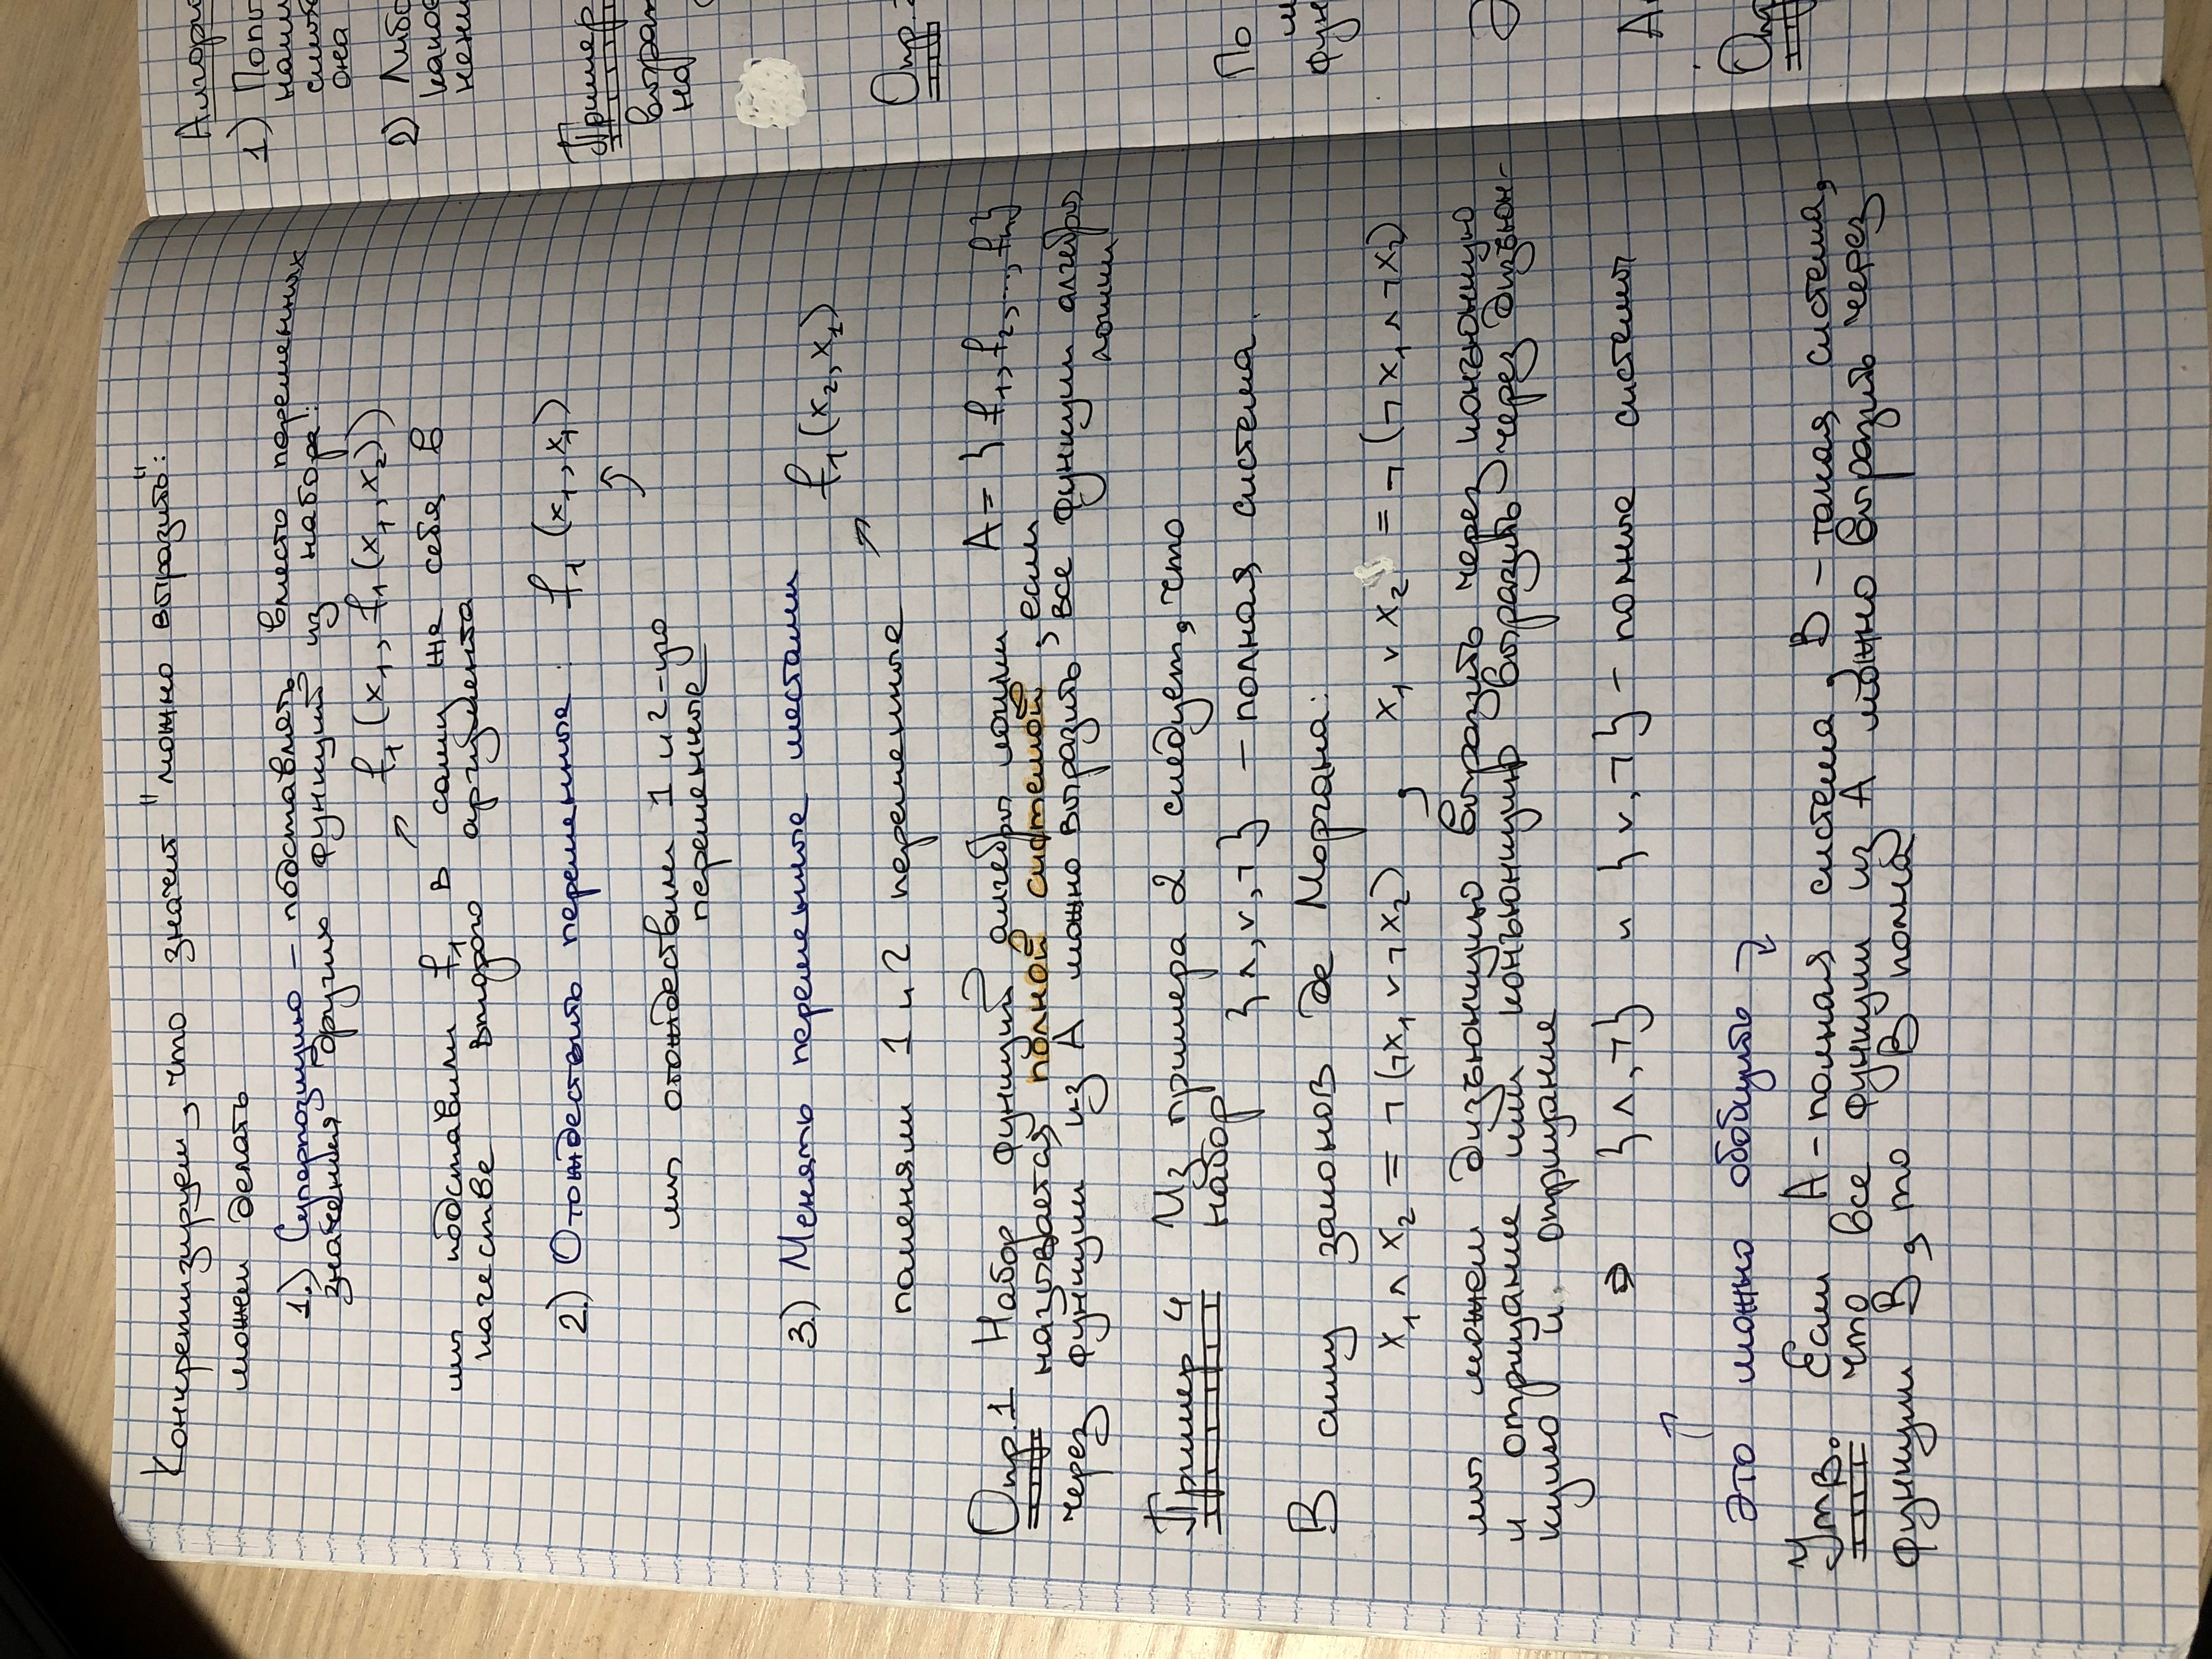 Конкретизируем, что значит "можно выразить":
можем делать
1.) Суперпозицию – подставлять вместо переменных
значения других функций из набора:
f₁ (x₁, f₁ (x₁, x₂))
мы подставили f₁ в саму же себя в
качестве второго аргумента
2.) Отождествить переменные : f₁ (x₁, x₁)
мы отождествили 1 и 2-ую
переменные
3.) Менять переменные местами
f₁ (x₂, x₁)
поменяли 1 и 2 переменные
Опр.1 Набор функций алгебры логики A = { f₁, f₂, ..., fₙ}
называется полной системой, если
через функции из A можно выразить все функции алгебры
логики
Пример 4 Из примера 2 следует, что
набор
{ ∧, ∨, ¬ } – полная система.
В силу законов де Моргана:
x₁ ∧ x₂ = ¬ (¬x₁ ∨ ¬x₂) , x₁ ∨ x₂ = ¬ (¬x₁ ∧ ¬x₂)
мы можем дизъюнкцию выразить через конъюнкцию
и отрицание или конъюнкцию выразить через дизъюн-
кцию и отрицание
⇒ { ∧, ¬ } и { ∨, ¬ } – полные системы
Это можно обобщить
Утв. Если A – полная система, B – такая система,
что все функции из A можно выразить через
функции B, то B полна
1)
2) Либо
Пример
на
Опр.
По